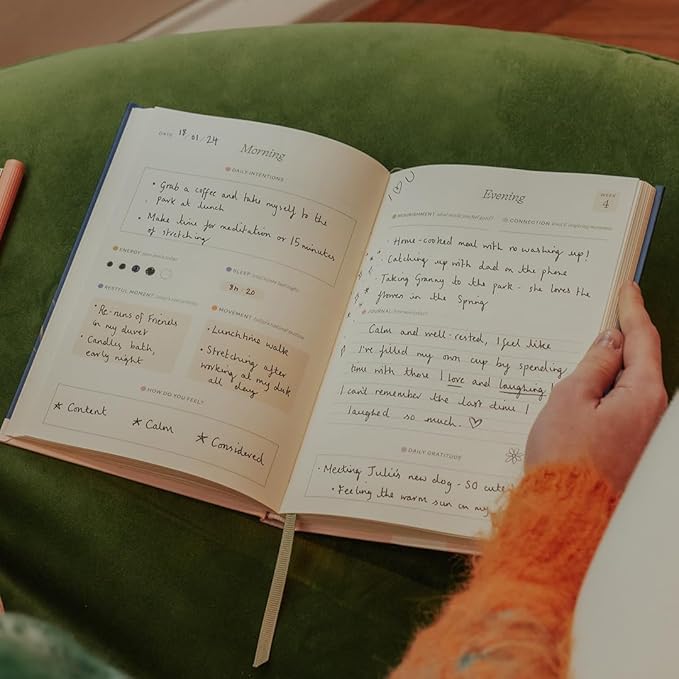 DATE 18/01/24
Morning
DAILY INTENTIONS
• Grab a coffee and take myself to the
park at lunch
• Make time for meditation or 15 minutes
of stretching
ENERGY
SLEEP
8h 20
RESTFUL MOMENT
• Re-runs of Friends
in my duvet
• Candles, bath,
early night
MOVEMENT
• Lunchtime walk
• Stretching after
working at my desk
all day
HOW DO YOU FEEL?
* Content
* Calm
* Considered
Evening
WEEK
4
NOURISHMENT
CONNECTION
• Home-cooked meal with no washing up!
• Catching up with dad on the phone
• Taking Granny to the park - she loves the
flowers in the Spring
JOURNAL
Calm and well-rested, I feel like
I've filled my own cup by spending
time with those I love and laughing!
I can't remember the last time I
laughed so much. ♡
DAILY GRATITUDE
• Meeting Julia's new dog - SO cute
• Feeling the warm sun on my